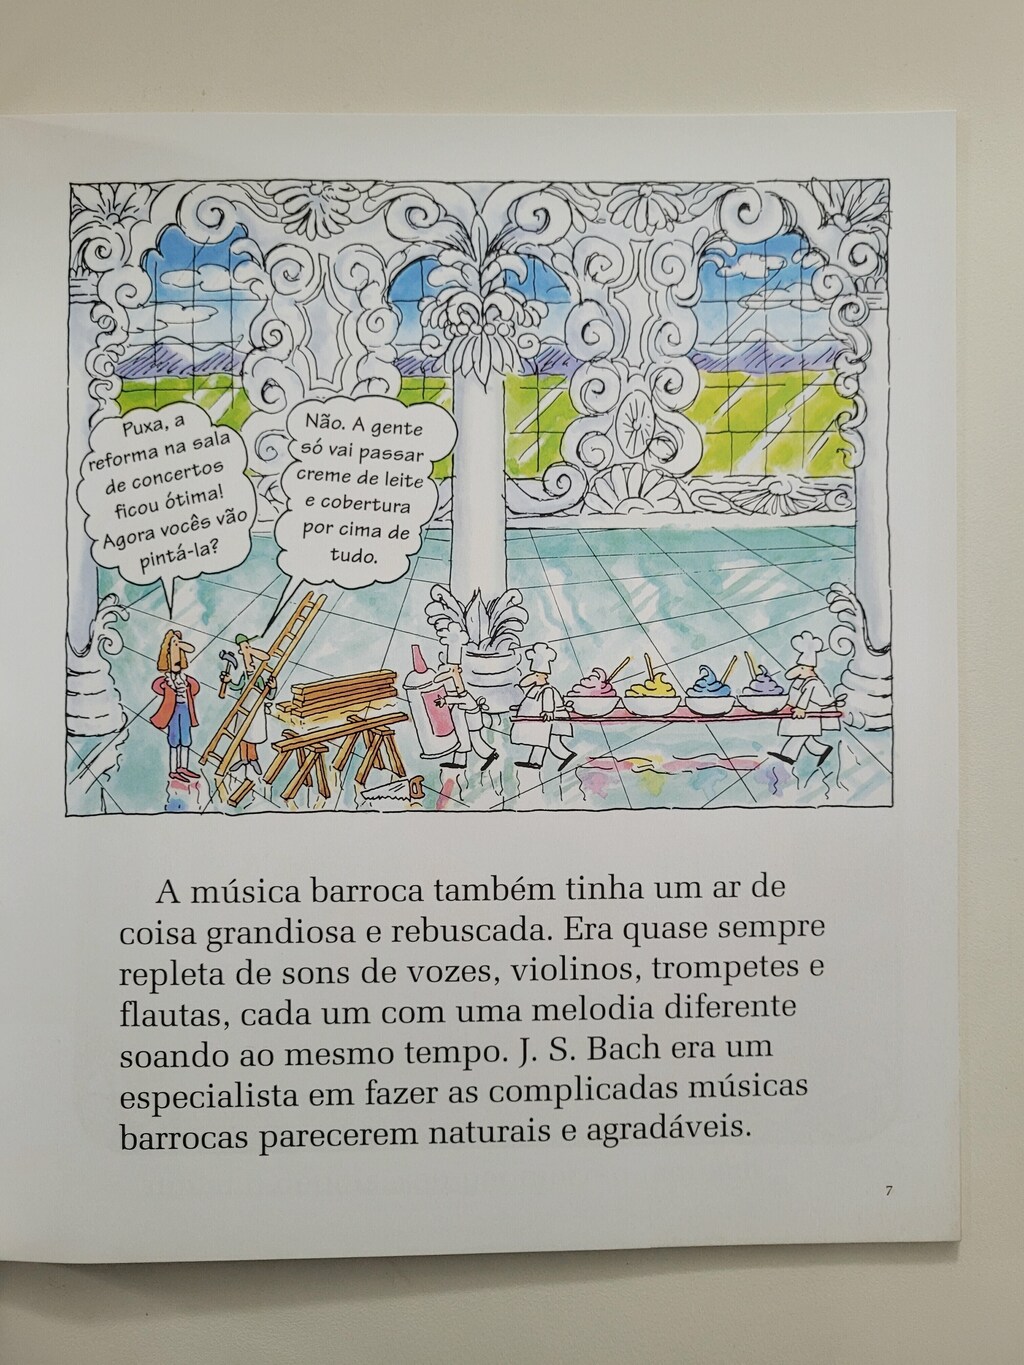 Puxa, a
reforma na sala
de concertos
ficou ótima!
Agora vocês vão
pintá-la?
Não. A gente
só vai passar
creme de leite
e cobertura
por cima de
tudo.
A música barroca também tinha um ar de
coisa grandiosa e rebuscada. Era quase sempre
repleta de sons de vozes, violinos, trompetes e
flautas, cada um com uma melodia diferente
soando ao mesmo tempo. J. S. Bach era um
especialista em fazer as complicadas músicas
barrocas parecerem naturais e agradáveis.
7